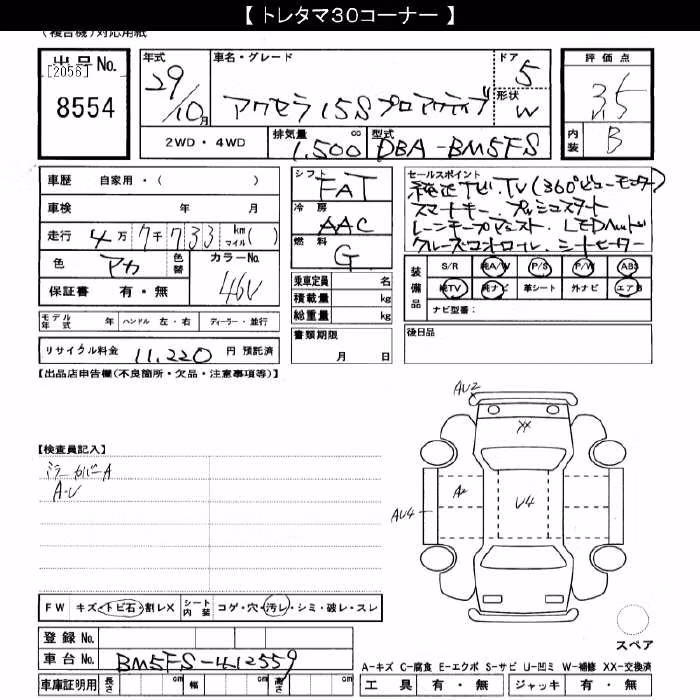 【 トレタマ30コーナー 】
(複合機)対応用紙
出品 No.
[2056]
8554
年式
29/10月
車名・グレード
アクセラ 15S プロアクティブ
ドア
5
形状
W
評価点
3.5
内装
B
2WD・4WD
排気量
1.500 cc
型式
DBA-BM5FS
車歴 自家用・( )
車検 年 月
走行 4万7千733 km マイル ( )
色 アカ 色替 カラーNo. 46V
保証書 有・無
シフト FAT
冷房 AAC
燃料 G
乗車定員 名
積載量 kg
総重量 kg
セールスポイント
純正ナビ.TV(360°ビューモニター)
スマートキー プッシュスタート
レーンキープアシスト. LEDヘッド
クルーズコントロール. シートヒーター
装備品
S/R 純A/W P/S P/W ABS
純TV 純ナビ 革シート 外ナビ エアB
ナビ型番:
モデル年式 年 ハンドル 左・右 ディーラー・並行
書類期限
月 日
後日品
リサイクル料金 11,220 円 預託済
【出品店申告欄(不良箇所・欠品・注意事項等)】
【検査員記入】
ミラーカバーA
A・U
AU2
XX
AU4
A2
U4
FW キズ・トビ石・割レX シート内装 コゲ・穴・汚レ・シミ・破レ・スレ
登録 No.
車台 No. BM5FS-412559
車庫証明用 長さ cm 幅 cm 高さ cm
スペア
A-キズ C-腐食 E-エクボ S-サビ U-凹ミ W-補修 XX-交換済
工具 有・無 ジャッキ 有・無